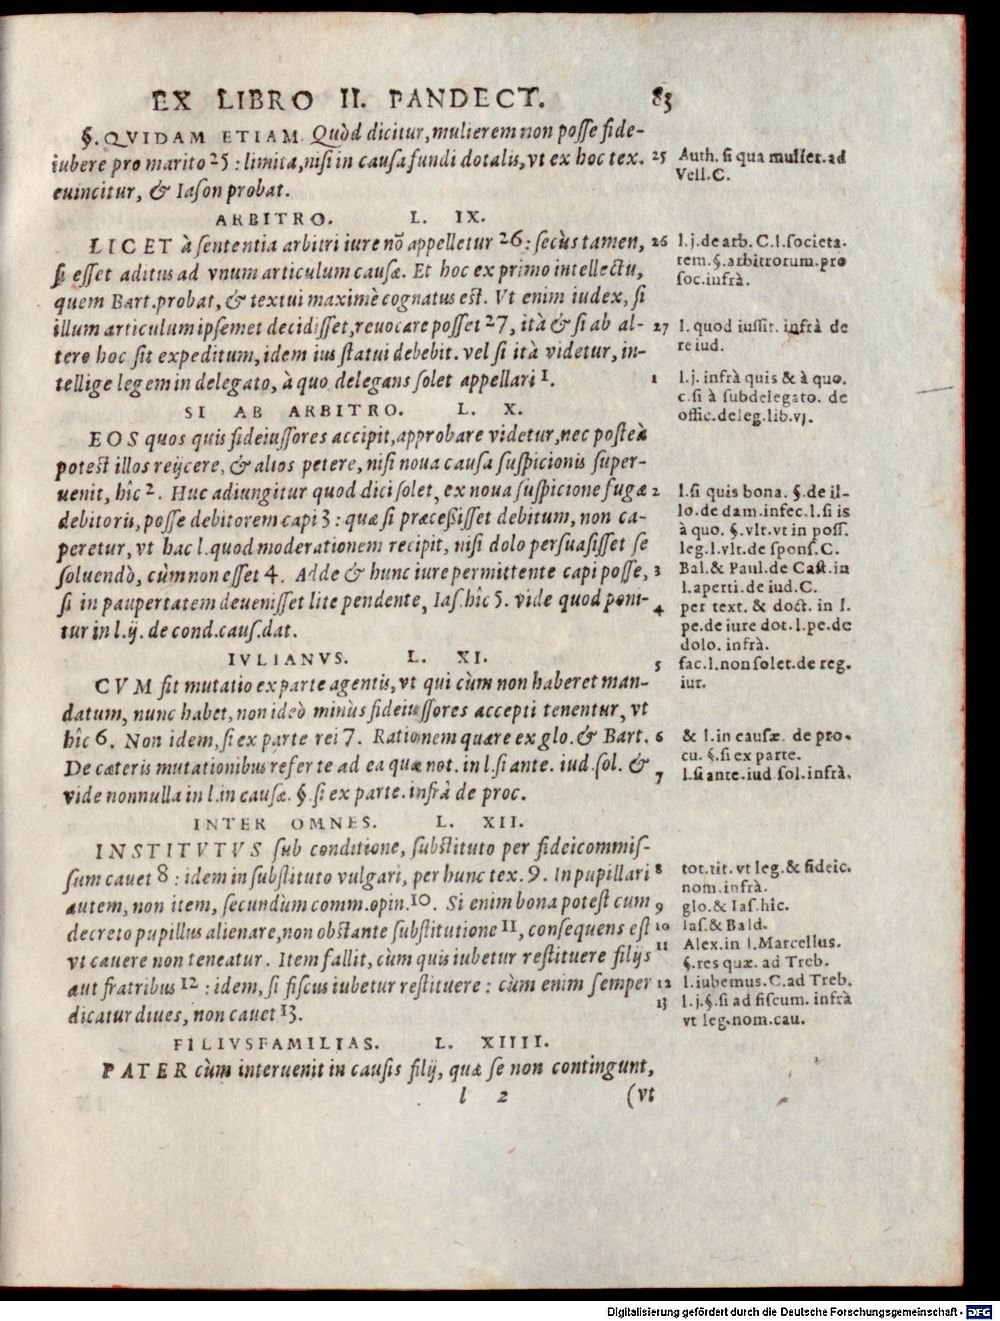 EX LIBRO II. PANDECT. 83
§. QVIDAM ETIAM. Quòd dicitur, mulierem non posse fide-
iubere pro marito 25 : limita, nisi in causa fundi dotalis, vt ex hoc tex.
euincitur, & Iason probat.
25 Auth. si qua mulier. ad
Vell. C.
ARBITRO. L. IX.
LICET à sententia arbitri iure nõ appelletur 26 : secùs tamen,
si esset aditus ad vnum articulum causæ. Et hoc ex primo intellectu,
quem Bart. probat, & textui maximè cognatus est. Vt enim iudex, si
illum articulum ipsemet decidisset, reuocare posset 27, ità & si ab al-
tero hoc sit expeditum, idem ius statui debebit. vel si ità videtur, in-
tellige legem in delegato, à quo delegans solet appellari 1.
26 l. j. de arb. C. l. societa-
rem. §. arbitrorum. pro
soc. infrà.
27 l. quod iussit. infrà de
re iud.
1 l. j. infrà quis & à quo.
c. si à subdelegato. de
offic. deleg. lib. vj.
SI AB ARBITRO. L. X.
EOS quos quis fideiussores accipit, approbare videtur, nec posteà
potest illos reijcere, & alios petere, nisi noua causa suspicionis super-
uenit, hîc 2. Huc adiungitur quod dici solet, ex noua suspicione fugæ
debitoris, posse debitorem capi 3 : quæ si præcessisset debitum, non ca-
peretur, vt hac l. quod moderationem recipit, nisi dolo persuasisset se
soluendò, cùm non esset 4. Adde & hunc iure permittente capi posse,
si in paupertatem deuenisset lite pendente, Ias. hîc 5. vide quod poni-
tur in l. ij. de cond. caus. dat.
2 l. si quis bona. §. de il-
lo. de dam. infec. l. si is
à quo. §. vlt. vt in poss.
leg. l. vlt. de spons. C.
3 Bal. & Paul. de Cast. in
l. aperti. de iud. C.
4 per text. & doct. in l.
pe. de iure dot. l. pe. de
dolo. infrà.
5 fac. l. non solet. de reg.
iur.
IVLIANVS. L. XI.
CVM fit mutatio ex parte agentis, vt qui cùm non haberet man-
datum, nunc habet, non ideò minùs fideiussores accepti tenentur, vt
hîc 6. Non idem, si ex parte rei 7. Rationem quære ex glo. & Bart.
De cæteris mutationibus referte ad ea quæ not. in l. si ante. iud. sol. &
vide nonnulla in l. in causæ. §. si ex parte. infrà de proc.
6 & l. in causæ. de pro-
cu. §. si ex parte.
7 l. si ante. iud sol. infrà.
INTER OMNES. L. XII.
INSTITVTVS sub conditione, substituto per fideicommis-
sum cauet 8 : idem in substituto vulgari, per hunc tex. 9. In pupillari
autem, non item, secundùm comm. opin. 10. Si enim bona potest cum
decreto pupillus alienare, non obstante substitutione 11, consequens est
vt cauere non teneatur. Item fallit, cùm quis iubetur restituere filijs
aut fratribus 12 : idem, si fiscus iubetur restituere : cùm enim semper
dicatur diues, non cauet 13.
8 tot. tit. vt leg. & fideic.
nom. infrà.
9 glo. & Ias. hîc.
10 Ias. & Bald.
11 Alex. in l. Marcellus.
§. res quæ. ad Treb.
12 l. iubemus. C. ad Treb.
13 l. j. §. si ad fiscum. infrà
vt leg. nom. cau.
FILIVSFAMILIAS. L. XIIII.
PATER cùm interuenit in causis filij, quæ se non contingunt,
l 2 (vt
Digitalisierung gefördert durch die Deutsche Forschungsgemeinschaft - DFG